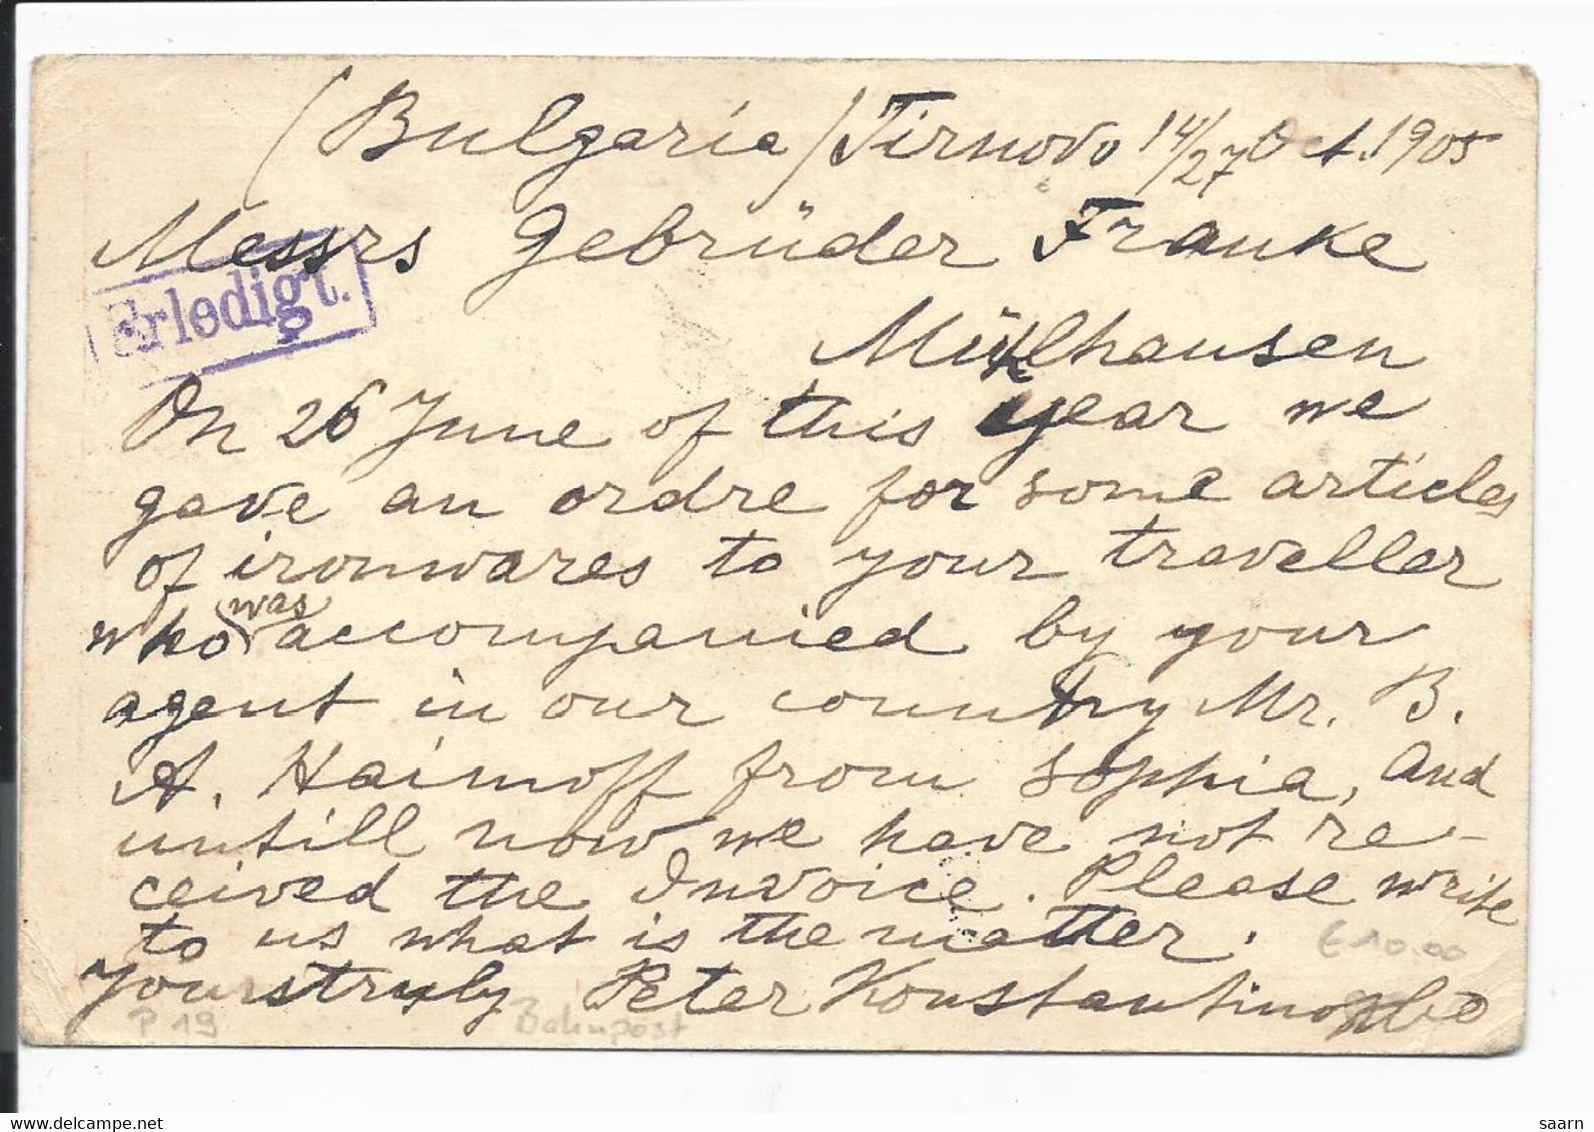 (Bulgaria) Tirnovo 14/27 Oct. 1905
Messrs Gebrüder Franke
Erledigt.
Mühlhausen
On 26 June of this year we
gave an ordre for some articles
of ironwares to your traveller
who was accompanied by your
agent in our country Mr. B.
A. Haimoff from Sophia, And
untill now we have not re-
ceived the Invoice. Please write
to us what is the matter.
€10.00
Yours truly Peter
P 19 Bahnpost
www.delcampe.net
saarn